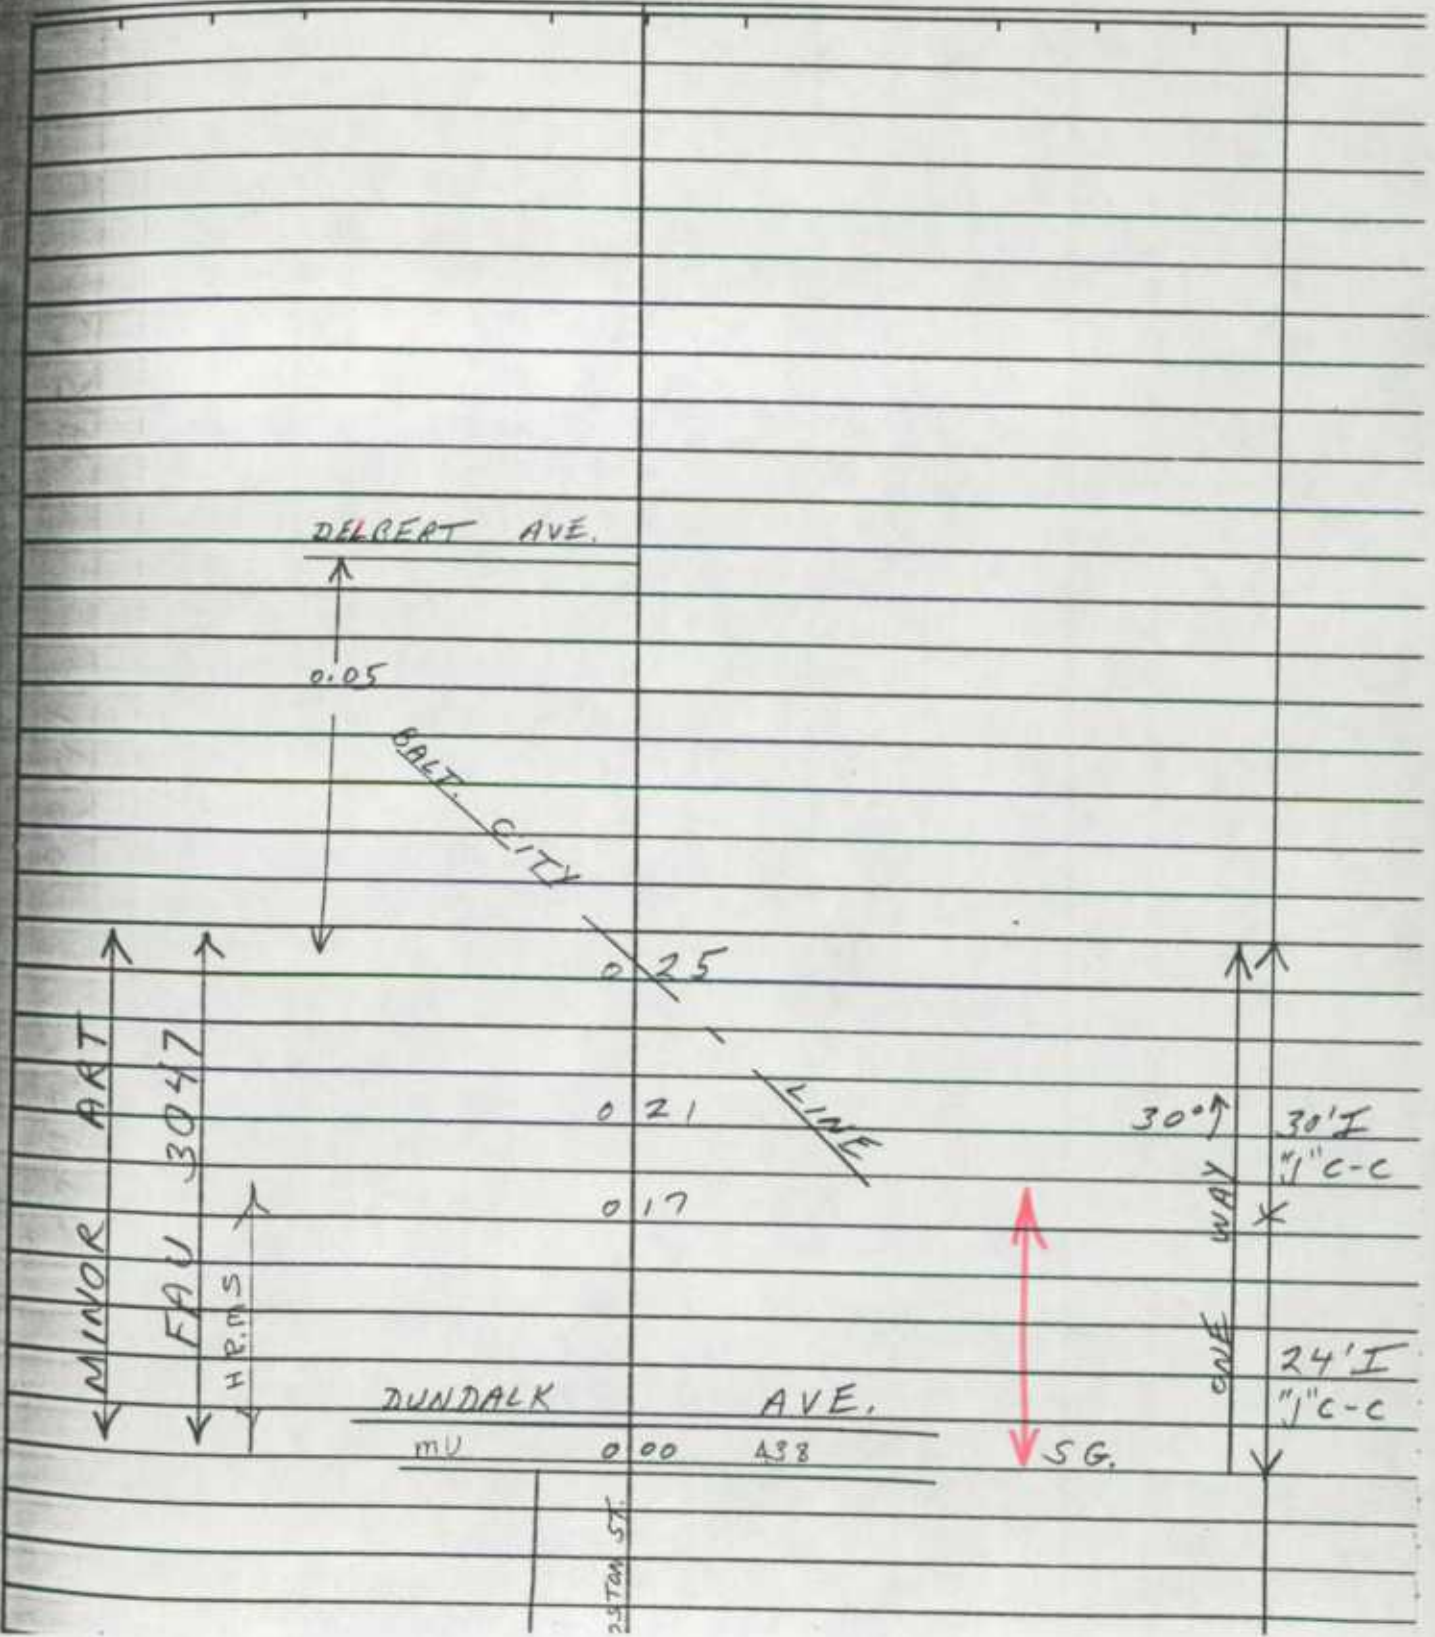 DELBERT AVE.
0.05
BALT. CITY LINE
0 25
0 21
0 17
MINOR ART
FAU 3047
H.P.M.S
30'↑
30' I
"J" C-C
ONE WAY
X
24' I
"J" C-C
DUNDALK AVE.
MU 0 00 438
S G.
ST.